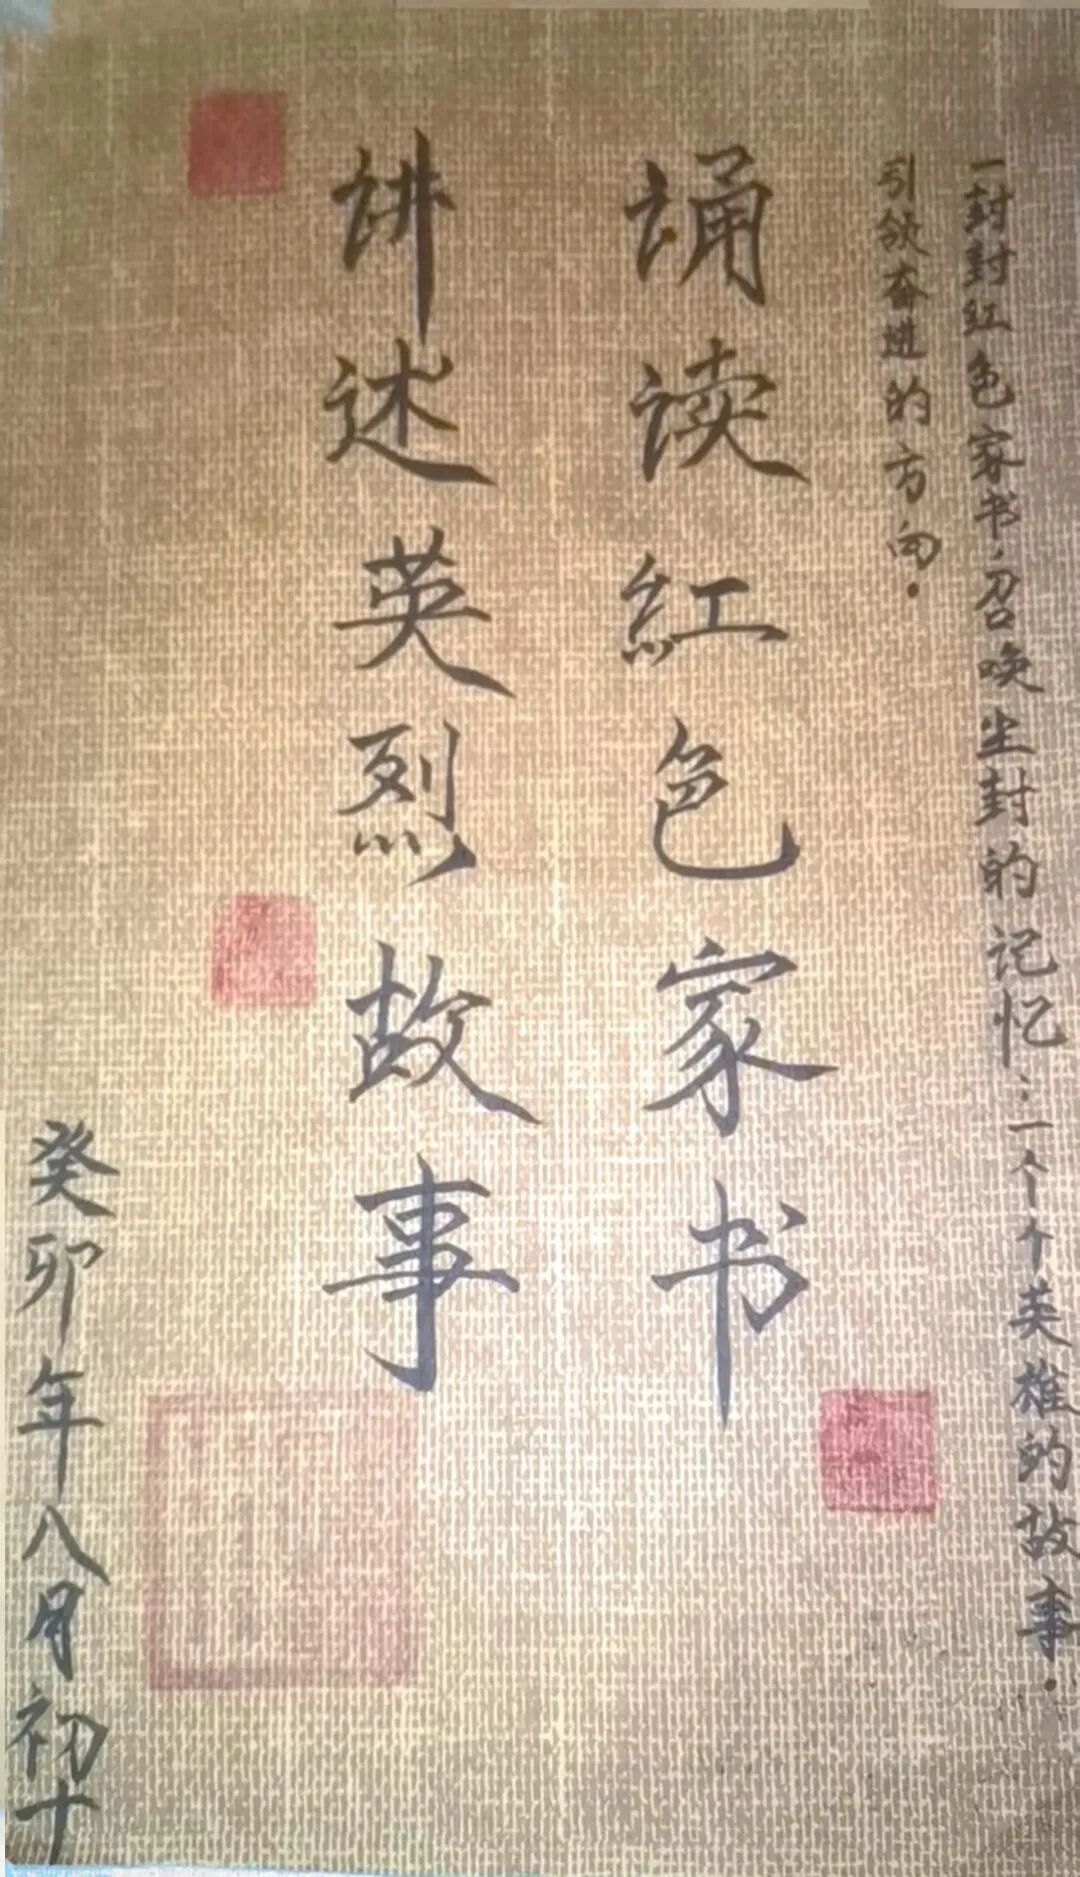 一封封红色家书，召唤尘封的记忆；一个个英雄的故事.
引领奋进的方向.
诵读红色家书
讲述英烈故事
癸卯年八月初十